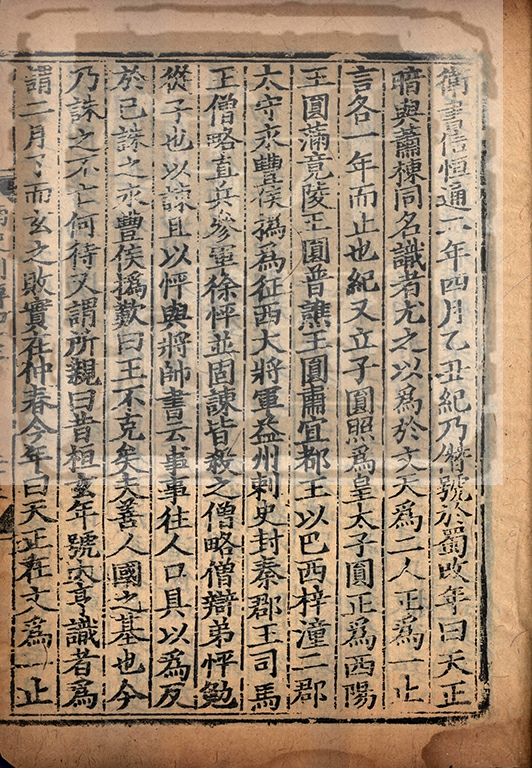 衛書信恒通六年四月乙丑紀乃僭號於蜀改年曰天正
暗與蕭棟同名識者尤之以爲於文天爲二人正爲一止
言各一年而止也紀又立子圓照爲皇太子圓正爲西陽
王圓滿竟陵王圓普譙王圓肅宜都王以巴西梓潼二郡
太守永豐侯撝爲征西大將軍益州刺史封秦郡王司馬
王僧略直兵參軍徐怦並固諫皆殺之僧略僧辯弟怦勉
從子也以諫且以怦與將帥書云事事往人口具以爲反
於己誅之永豐侯撝歎曰王不克矣夫善人國之基也今
乃誅之不亡何待又謂所親曰昔桓玄年號大亨識者爲
謂二月了而玄之敗實在仲春今年曰天正在文爲一止